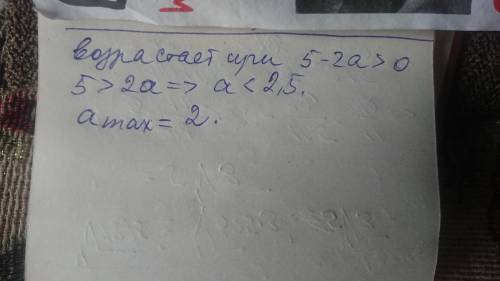 возрастает при 5-2a>0
5>2a=> a<2,5.
amax= 2.